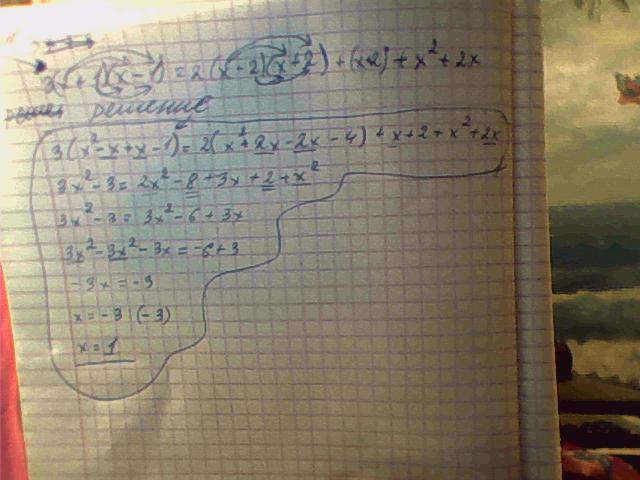 +1)(x²-1) = 2(x-2)(x+2) + (x+2) + x² + 2x
решение
3(x²-x+x-1) = 2(x²+2x-2x-4) + x+2+x²+2x
3x²-3 = 2x²-8+3x+2+x²
3x²-3 = 3x²-6+3x
3x²-3x²-3x = -6+3
-3x = -3
x = -3:(-3)
x = 1